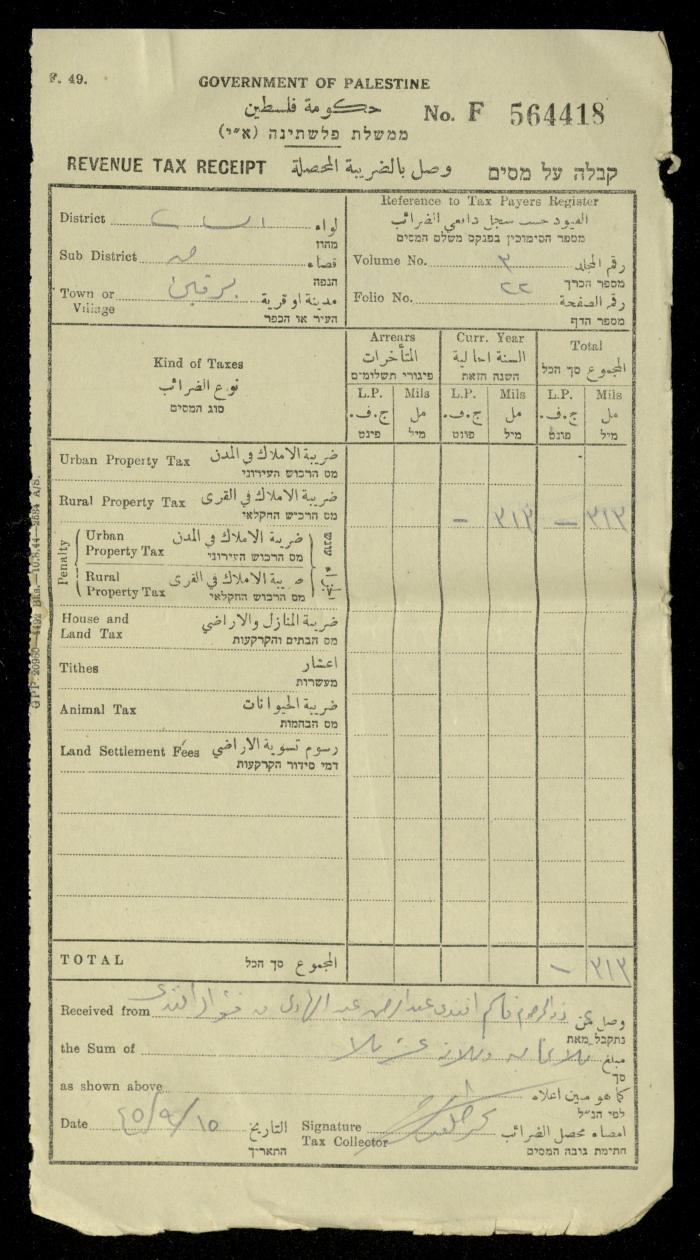 F. 49.
GOVERNMENT OF PALESTINE
حكومة فلسطين
No. F 564418
ממשלת פלשתינה (א״י)
REVENUE TAX RECEIPT وصل بالضريبة المحصلة קבלה על מסים
District لواء
מחוז
Sub District قضاء
הנפה
Town or Village برقين مدينة او قرية
העיר או הכפר
Reference to Tax Payers Register
القيود حسب سجل دافعي الضرائب
מספר הסימוכין בפנקס משלם המסים
Volume No. ٣ رقم المجلد
מספר הכרך
Folio No. ٢٢ رقم الصفحة
מספר הדף
Kind of Taxes
نوع الضرائب
סוג המסים
Arrears
المتأخرات
פיגורי תשלומים
Curr. Year
السنة الحالية
השנה הזאת
Total
المجموع סך הכל
L.P. Mils L.P. Mils L.P. Mils
ج.ف. مل ج.ف. مل ج.ف. مل
פונט מיל פונט מיל פונט מיל
Urban Property Tax ضريبة الاملاك في المدن
מס הרכוש העירוני
Rural Property Tax ضريبة الاملاك في القرى — ٣١٣ — ٣١٣
מס הרכוש החקלאי
Penalty
Urban Property Tax ضريبة الاملاك في المدن
מס הרכוש העירוני
Rural Property Tax ضريبة الاملاك في القرى
מס הרכוש החקלאי
עונש
House and Land Tax ضريبة المنازل والاراضي
מס הבתים והקרקעות
Tithes اعشار
מעשרות
Animal Tax ضريبة الحيوانات
מס הבהמות
Land Settlement Fees رسوم تسوية الاراضي
דמי סידור הקרקעות
TOTAL المجموع סך הכל — ٣١٣
Received from قاسم افندي عبد الرحمن عبد الهادي وصل من
נתקבל מאת
the Sum of مبلغ
סך
as shown above كما هو مبين اعلاه
לפי הנ״ל
Date ٤٥/٩/١٥ التاريخ
התאריך
Signature Tax Collector امضاء محصل الضرائب
חתימת גובה המסים